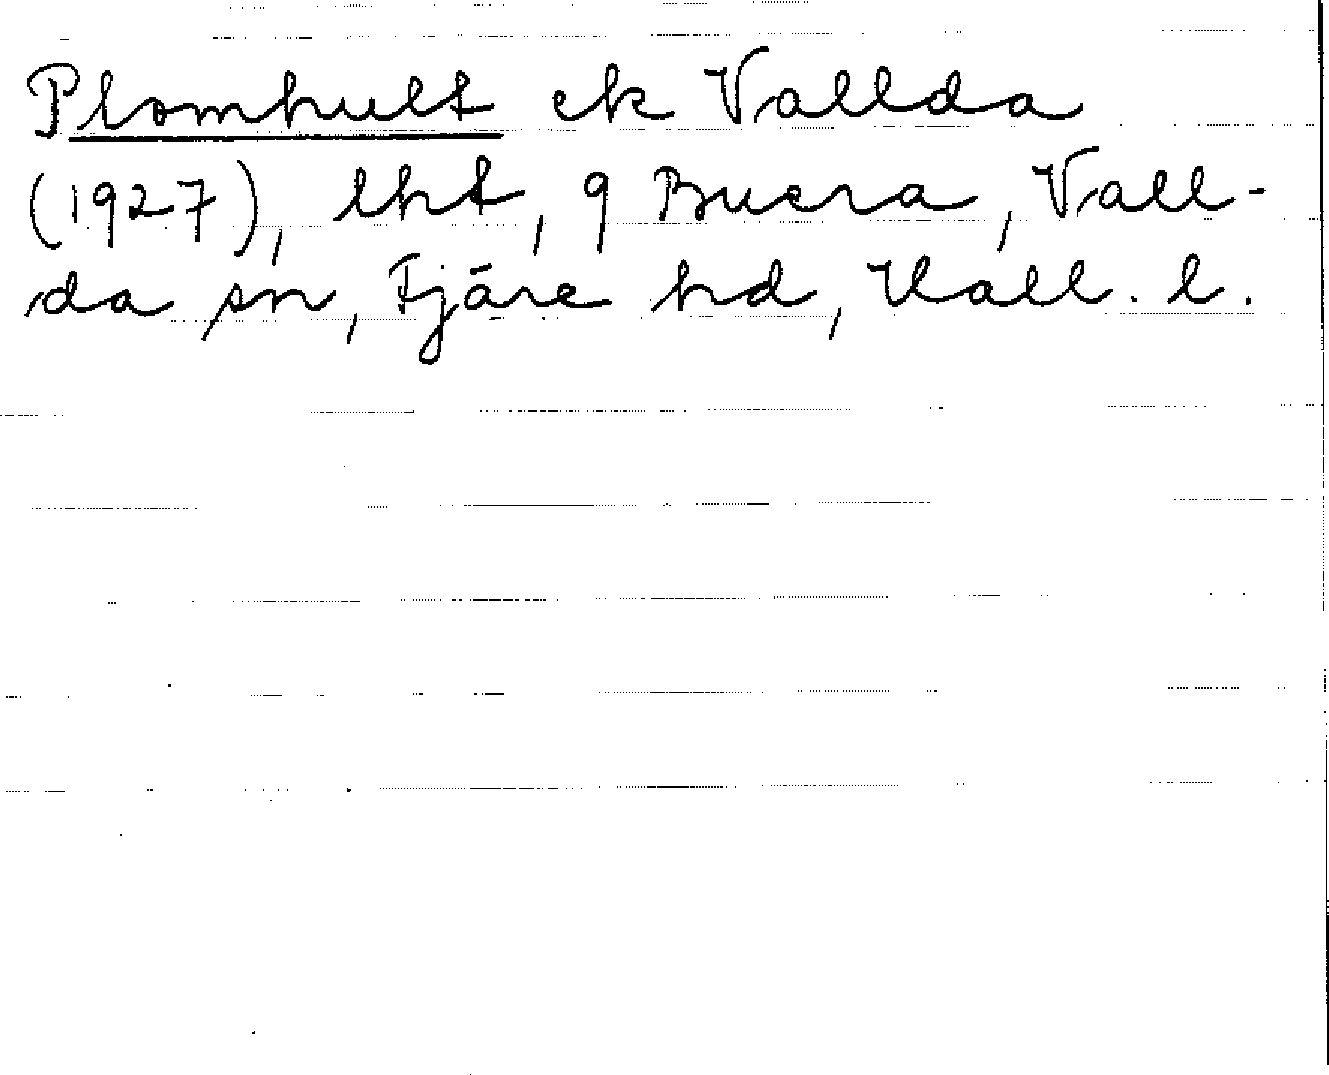 Plomhult ek Vallda
(1927), lht, g Buera, Vall-
da sn, Fjäre hd, Hall. l.